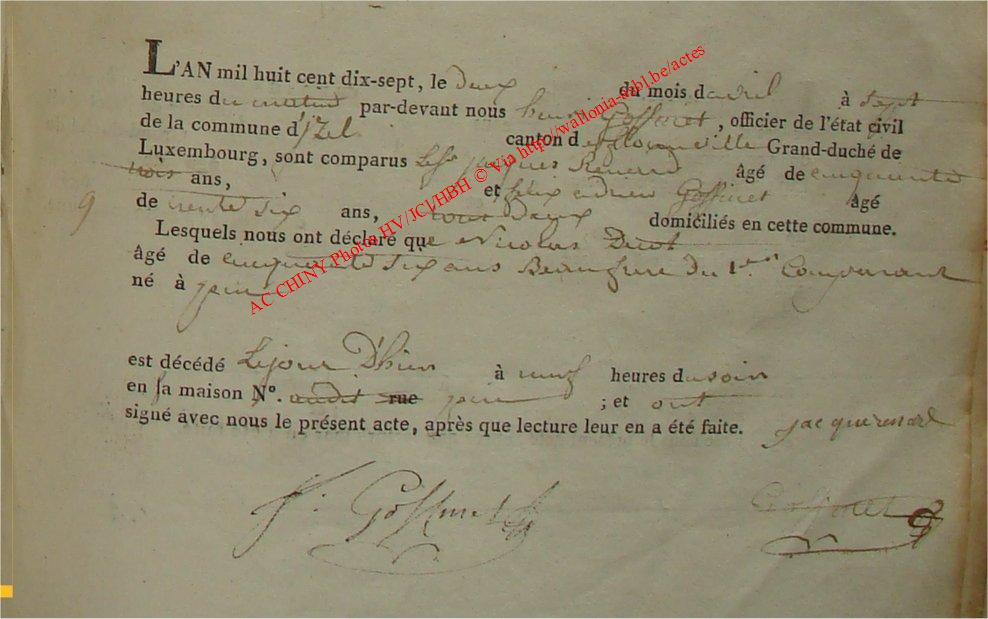 L'AN mil huit cent dix-sept, le deux du mois d'avril à sept
heures du matin par-devant nous henri Goffinet, officier de l'état civil
de la commune d'jzel canton de florenville Grand-duché de
Luxembourg, sont comparus Les jacques Renard âgé de cinquante
trois ans, et felix andrieu Goffinet âgé
9 de trente six ans, tous deux domiciliés en cette commune.
Lesquels nous ont déclaré que Nicolas
âgé de cinquante six ans Beaufrere du 1.er Comparant
né à
est décédé Lejour D'hier à neuf heures du soir
en sa maison N°. audit rue ; et ont
signé avec nous le présent acte, après que lecture leur en a été faite. jacque renard
Goffinet Goffinet
AC CHINY Photos HV/JCl/HBH © Via http://wallonia-asbl.be/actes